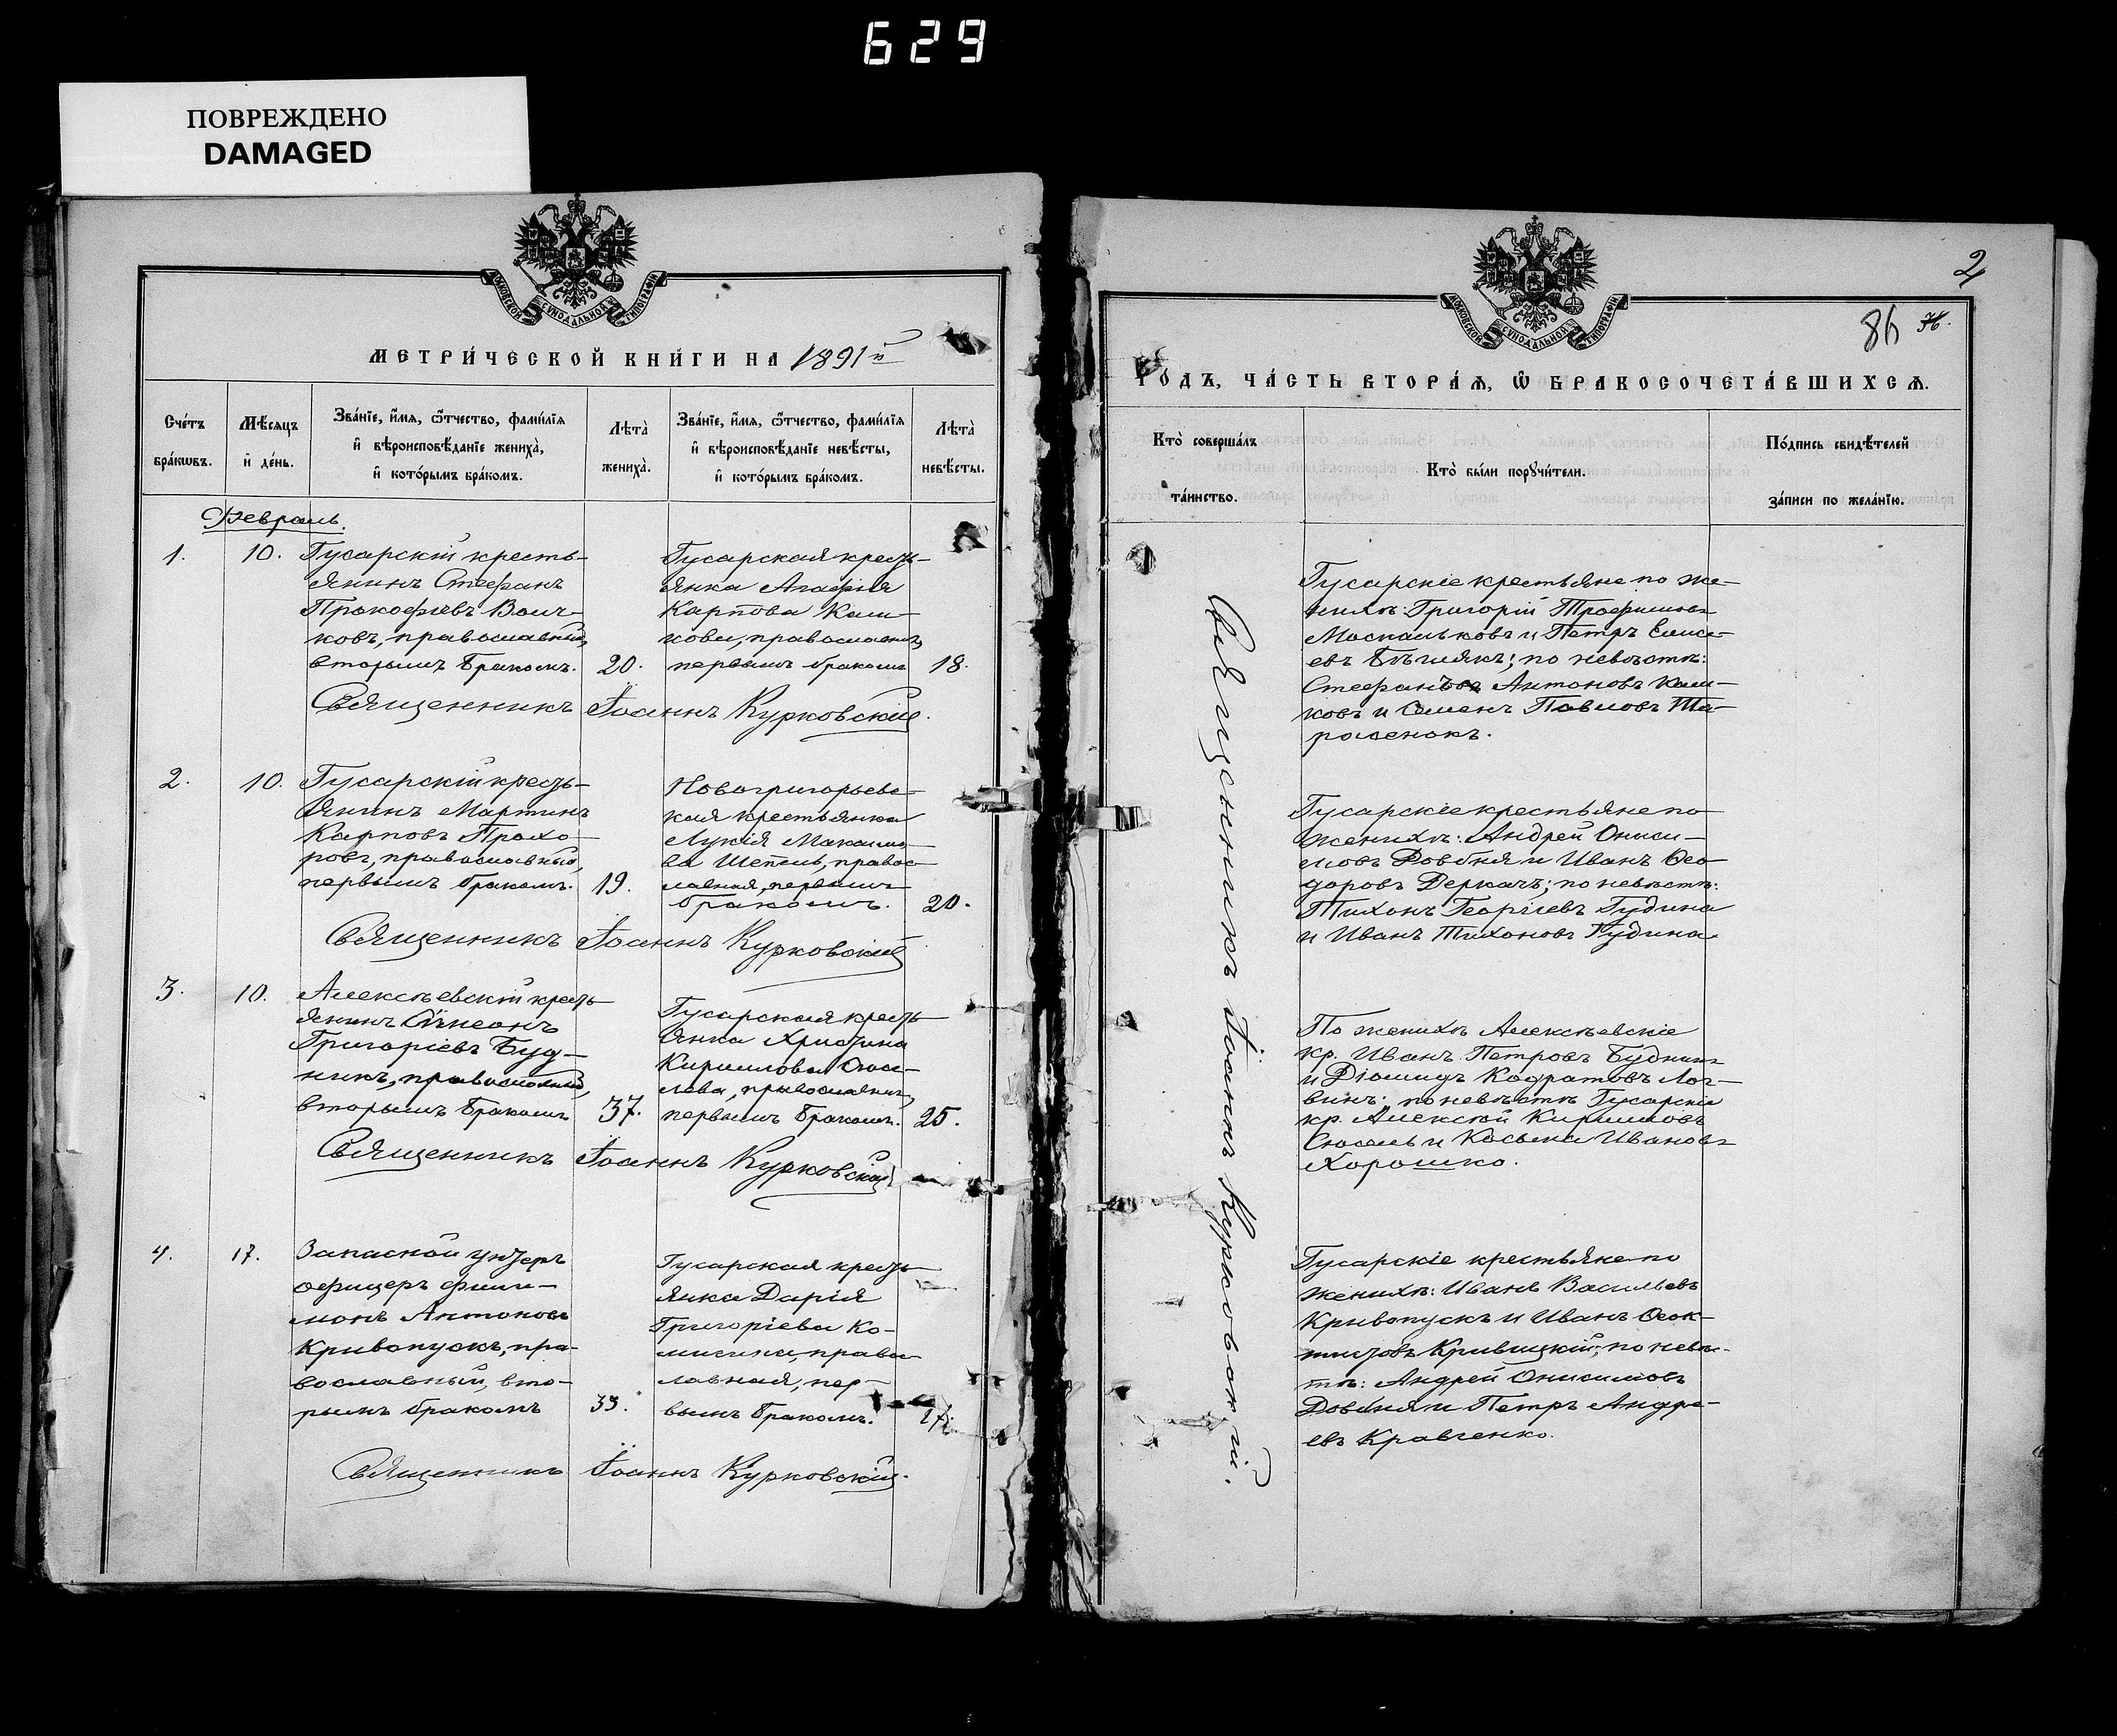 629
ПОВРЕЖДЕНО
DAMAGED
МОСКОВСКОЙ СѴНОДАЛЬНОЙ ТИПОГРАФІИ
МЕТРИ́ЧЕСКОЙ КНИ́ГИ НА 1891й
Сче́тъ бра́кѡвъ.
Мѣ́сяцъ и҆ де́нь.
Зва́нїе, и҆́мя, ѻ҆́тчество, фами́лїя
и҆ вѣроисповѣ́данїе жениха̀,
и҆ кото́рымъ бра́комъ.
Лѣта̀ жениха̀.
Зва́нїе, и҆́мя, ѻ҆́тчество, фами́лїя
и҆ вѣроисповѣ́данїе невѣ́сты,
и҆ кото́рымъ бра́комъ.
Лѣта̀ невѣ́сты.
Февраль.
1. 10.
Гусарскій кресть-
янинъ Стефанъ
Прокофіевъ Волч-
ковъ, православный,
вторымъ бракомъ. 20.
Гусарская кресть-
янка Агафія
Карпова Каш-
кова, православн.,
первымъ бракомъ 18.
Священникъ Іоаннъ Курковскій.
2. 10.
Гусарскій кресть-
янинъ Мартинъ
Карповъ Прохо-
ровъ, православный,
первымъ бракомъ. 19.
Новогригорьевс-
кая крестьянка
Лукія Максимо-
ва Шепель, правос-
лавная, первымъ
бракомъ. 20.
Священникъ Іоаннъ Курковскій
3. 10.
Алексѣевскій кресть
янинъ Сѵмеонъ
Григоріевъ Буд-
никъ, православный,
вторымъ бракомъ 37.
Гусарская кресть-
янка Христина
Кириллова
православн.,
первымъ бракомъ. 25.
Священникъ Іоаннъ Курковскій
4. 17.
Запасной унтеръ
офицеръ Фили-
монъ Антоновъ
Кривопускъ, пра-
вославный, вто-
рымъ бракомъ 33.
Гусарская кресть-
янка Дарія
Григоріева Ко-
правос-
лавная, пер-
вымъ бракомъ. 17.
Священникъ Іоаннъ Курковскій.
2
86
МОСКОВСКОЙ СѴНОДАЛЬНОЙ ТИПОГРАФІИ
ГО́ДЪ, ЧА́СТЬ ВТОРА́Ѧ, Ѡ҆ БРАКОСОЧЕТА́ВШИХСѦ.
Кто̀ соверша́лъ
та́инство.
Кто̀ бы́ли порꙋчи́тели.
По́дпись свидѣ́телей
за́писи по жела́нїю.
Священникъ Іоаннъ Курковскій.
Гусарскіе крестьяне по же-
нихѣ: Григорій Трофимовъ
Москальковъ и Петръ Елисе-
евъ по невѣстѣ:
Стефанъ Антоновъ Каш-
ковъ и Семенъ Павловъ Та-
расенокъ.
Гусарскіе крестьяне по
женихѣ: Андрей Ониси-
мовъ Довбня и Иванъ Ѳео-
доровъ Деркачъ; по невѣстѣ:
Тихонъ Георгіевъ Гудина
и Иванъ Тихоновъ Гудина.
По женихѣ Алексѣевскіе
кр. Иванъ Петровъ Будникъ
и Діомидъ Кодратовъ Лог-
винъ: по невѣстѣ Гусарскіе
кр. Алексѣй Кирилловъ
и Косьма Ивановъ
Хорошко.
Гусарскіе крестьяне по
женихѣ: Иванъ Васильевъ
Кривопускъ и Иванъ Ѳеок-
тистовъ Кривицкій; по невѣс-
тѣ: Андрей Онисимовъ
Довбня и Петръ Андре-
евъ Кравченко.